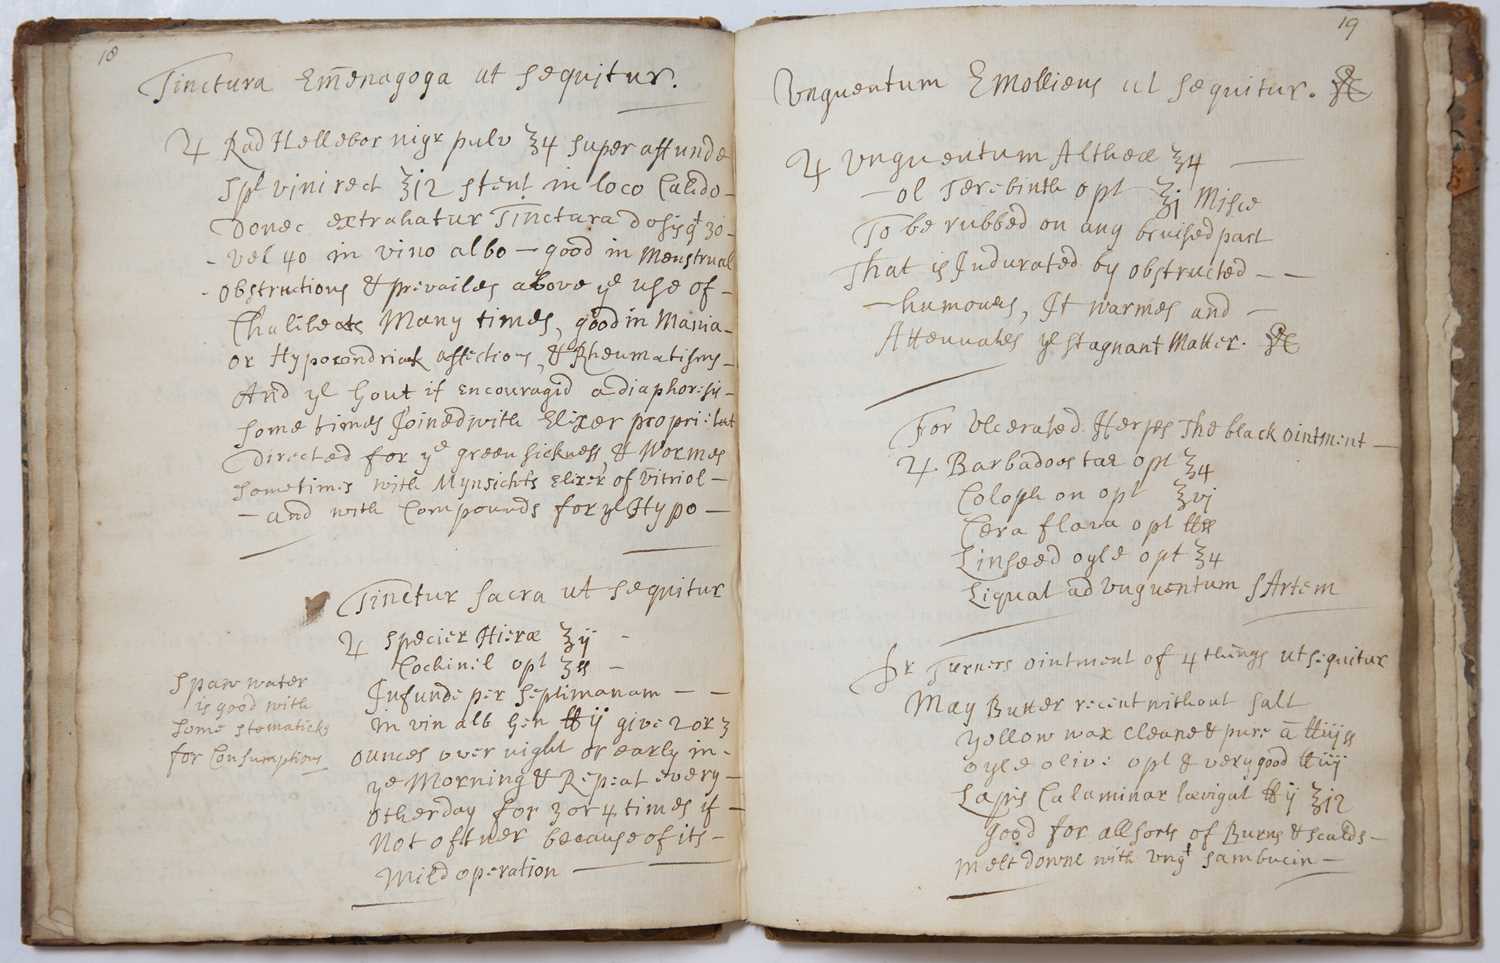 18
Tinctura Em̄enagoga ut sequitur.
♃ Rad Hellebor nigr pulv ℥4 super affunde
Spt vini rect ℥j12 stent in loco Calido –
Donec extrahatur Tinctura dosis gt 30 –
– vel 40 in vino albo – good in Menstrual
– obstructions & prevailes above ye use of –
Chalibeats Many times, good in Mania –
or Hypocondriak affections, & Rheumatisms –
And ye Gout if encouraged a diaphoresis –
some times Joined with Elixer proprietat
directed for ye green sickness, & Wormes
sometimes with Mynsichts Elixer of vitriol –
– and with Compounds for ye Hypo –
Tinctur Sacra ut sequitur
♃ Specier Hieræ ℥ij –
Cochinil opt ℥ss –
Infunde per septimanam – –
in vin alb Gen ℔ij give 2 or 3
ounces over night or early in –
ye Morning & Repeat every –
other day for 3 or 4 times if –
Not oftner because of its –
Mild operation –
Spaw water
is good with
some stomaticks
for Consumptions
19
Vnguentum Emolliens ut sequitur.
♃ Vnguentum Altheæ ℥4 –
– ol Terebinth opt ℥j Misce
To be rubbed on any bruised part
That is Indurated by obstructed – –
– humours, It warmes and –
Attenuates ye stagnant Matter.
For Vlcerated Herpes The black ointment –
♃. Barbadoes tar opt ℥4
Coloph on opt ℥vj
Cera flava opt ℔ss
Linseed oyle opt ℥4
Liquat ad Vnguentum S Artem
Dr Turners ointment of 4 things ut sequitur
May Butter recent without salt
yollow wax cleane & pure ā ℔iijss
oyle olive opt & very good ℔iij
Lapis Calaminar lævigat ℔ij ℥j12
good for all sorts of Burns & scalds –
melt downe with Vngt sambucin –